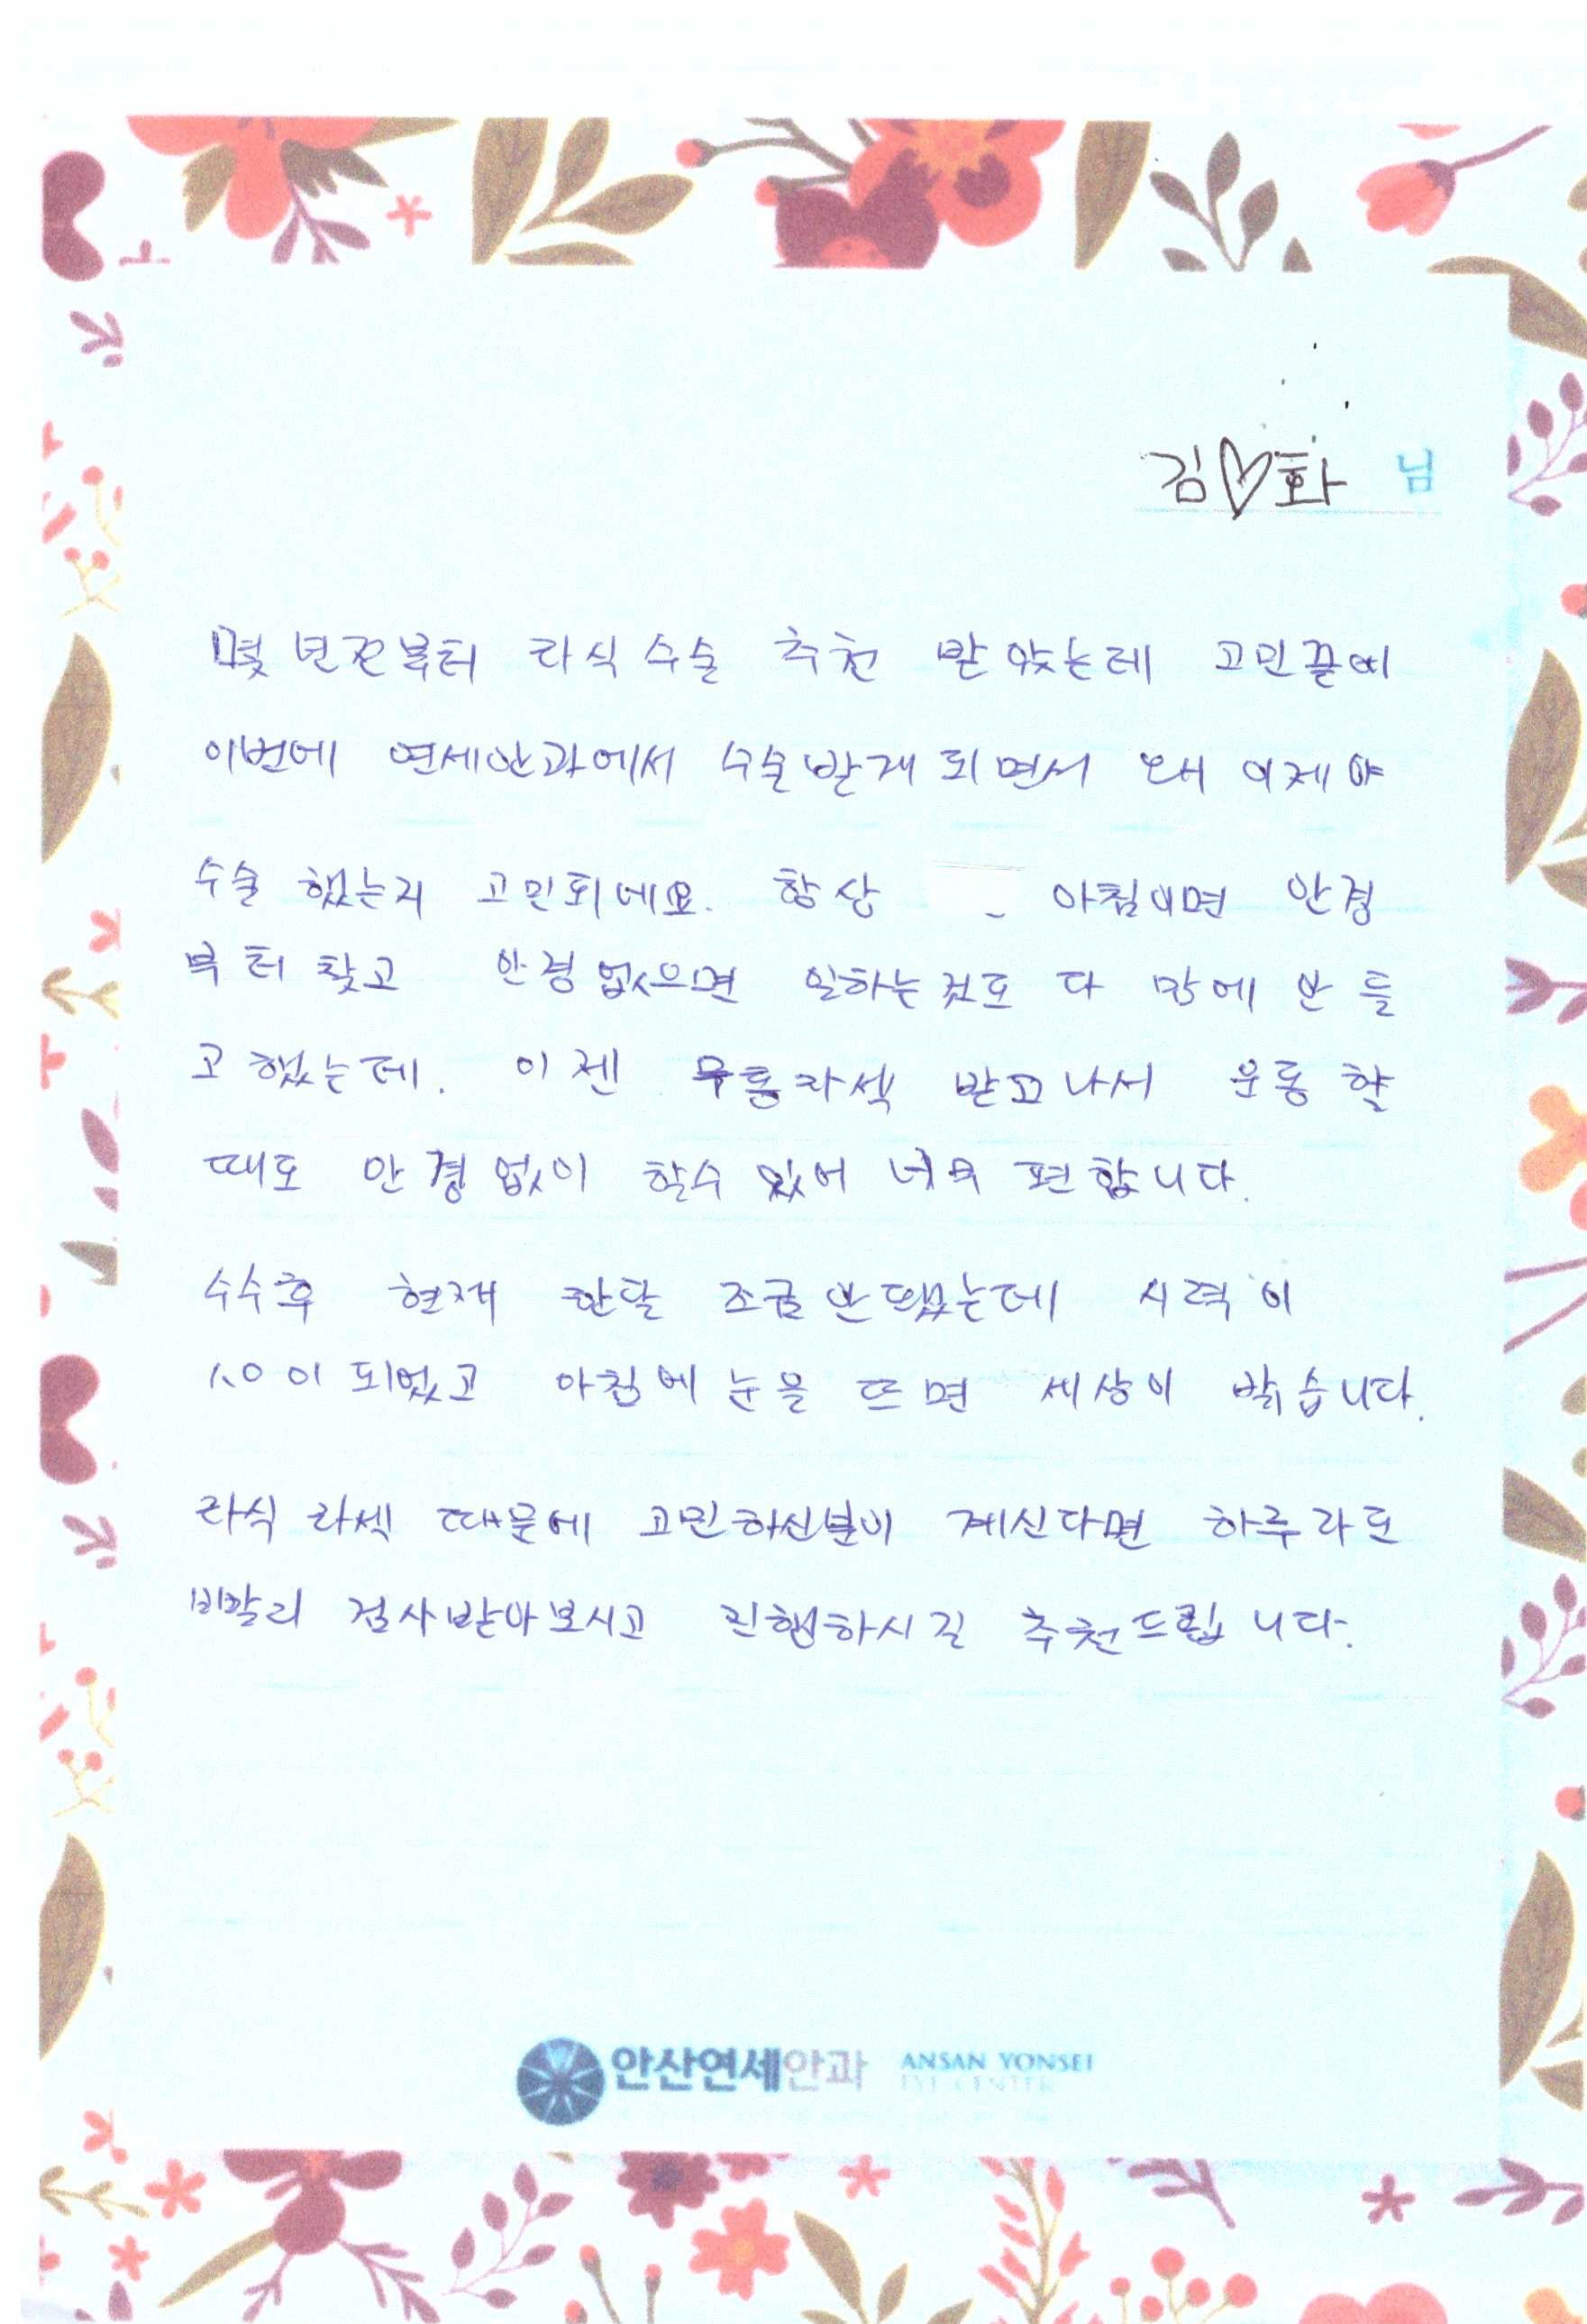 김♡화 님
몇 년전부터 라식수술 추천 받았는데 고민끝에
이번에 연세안과에서 수술받게 되면서 왜 이제야
수술 했는지 고민되네요. 항상 아침이면 안경
부터 찾고 안경없으면 일하는것도 다 맘에 안 들
고 했는데. 이젠 무통라섹 받고나서 운동 할
때도 안경없이 할수 있어 너무 편합니다.
수수후 현재 한달 조금 안됐는데 시력이
1.0이 되었고 아침에 눈을 뜨면 세상이 밝습니다.
라식 라섹 때문에 고민하신분이 계신다면 하루라도
빨리 검사받아보시고 진행하시길 추천드립니다.
안산연세안과 ANSAN YONSEI
EYE CENTER